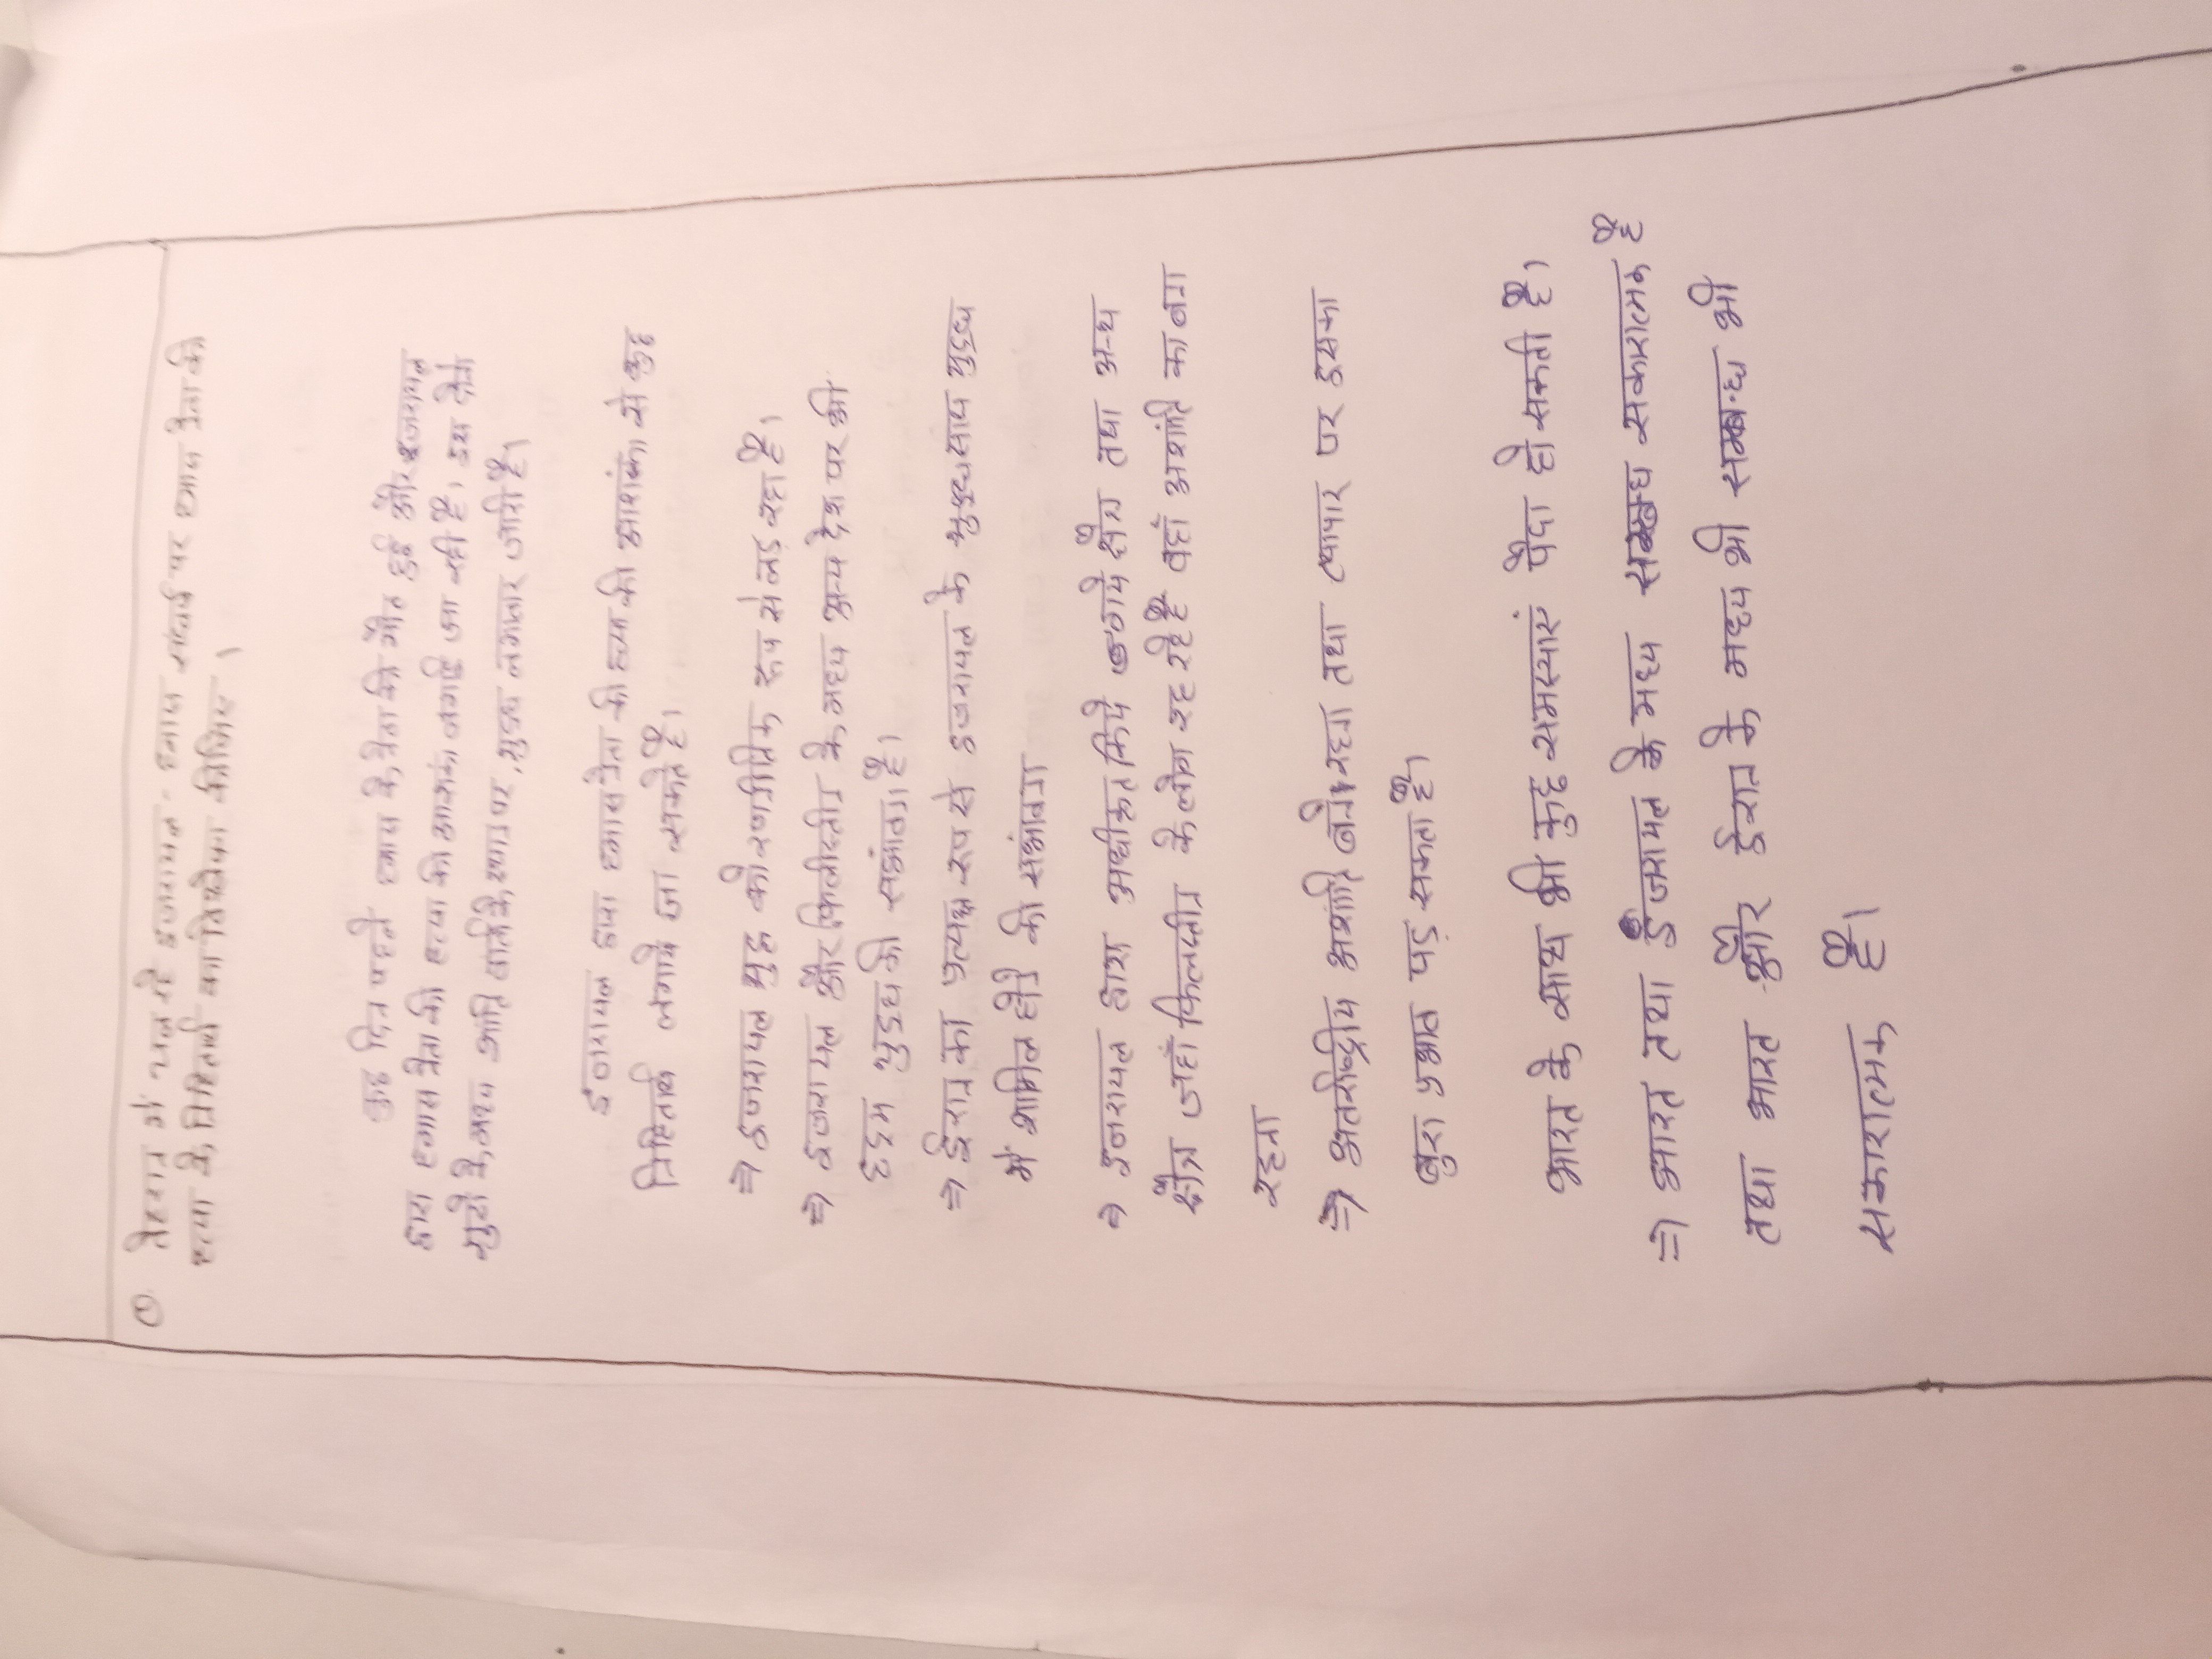 ① तेहरान में चल रहे इजरायल - हमास संघर्ष पर हमास नेता की
हत्या के निहितार्थ का विश्लेषण कीजिए।
कुछ दिन पहले हमास के नेता की मौत हुई और इजरायल
द्वारा हमास नेता की हत्या की आशंका लगाई जा रही है, इस दोनों
गुटों के मध्य शांति वार्ता के स्थान पर, युद्ध लगातार जारी है।
इजरायल द्वारा हमास नेता की हत्या की आशंका से कुछ
निहितार्थ लगाये जा सकते हैं।
⇒ इजरायल युद्ध को रणनीतिक रूप से लड़ रहा है।
⇒ इजरायल और फिलीस्तीन के मध्य अन्य देश पर भी
छदम युद्ध की संभावना है।
⇒ ईरान का प्रत्यक्ष रूप से इजरायल के साथ युद्ध
में शामिल होने की संभावना
⇒ इजरायल द्वारा अधीकृत किये गये क्षेत्र तथा अन्य
क्षेत्र जहाँ फिलस्तीन के लोग रह रहे हैं वहाँ अशांति का बना
रहना
⇒ अंतर्राष्ट्रीय अशांति बने रहना तथा व्यापार पर इसका
बुरा प्रभाव पड़ सकता है।
भारत के साथ भी कुछ समस्याएं पैदा हो सकती है।
⇒ भारत तथा इजरायल के मध्य सम्बन्ध सकारात्मक है
तथा भारत और ईरान के मध्य भी सम्बन्ध भी
सकारात्मक है।